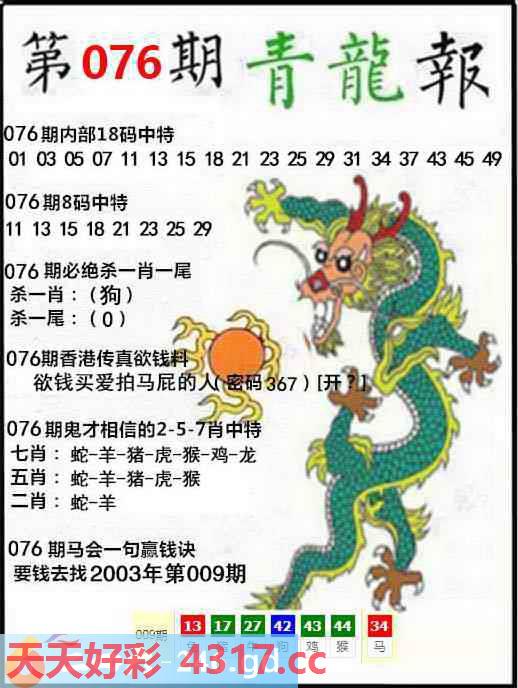 第076期青龍報
076期内部18码中特
01 03 05 07 11 13 15 18 21 23 25 29 31 34 37 43 45 49
076期8码中特
11 13 15 18 21 23 25 29
076期必绝杀一肖一尾
杀一肖：（狗）
杀一尾：（0）
076期香港传真欲钱料
欲钱买爱拍马屁的人(密码367)[开？]
076期鬼才相信的2-5-7肖中特
七肖：蛇-羊-猪-虎-猴-鸡-龙
五肖：蛇-羊-猪-虎-猴
二肖：蛇-羊
076期马会一句赢钱诀
要钱去找2003年第009期
009期 13 17 27 42 43 44 34
狗 鸡 猴 马
天天好彩 4317.cc